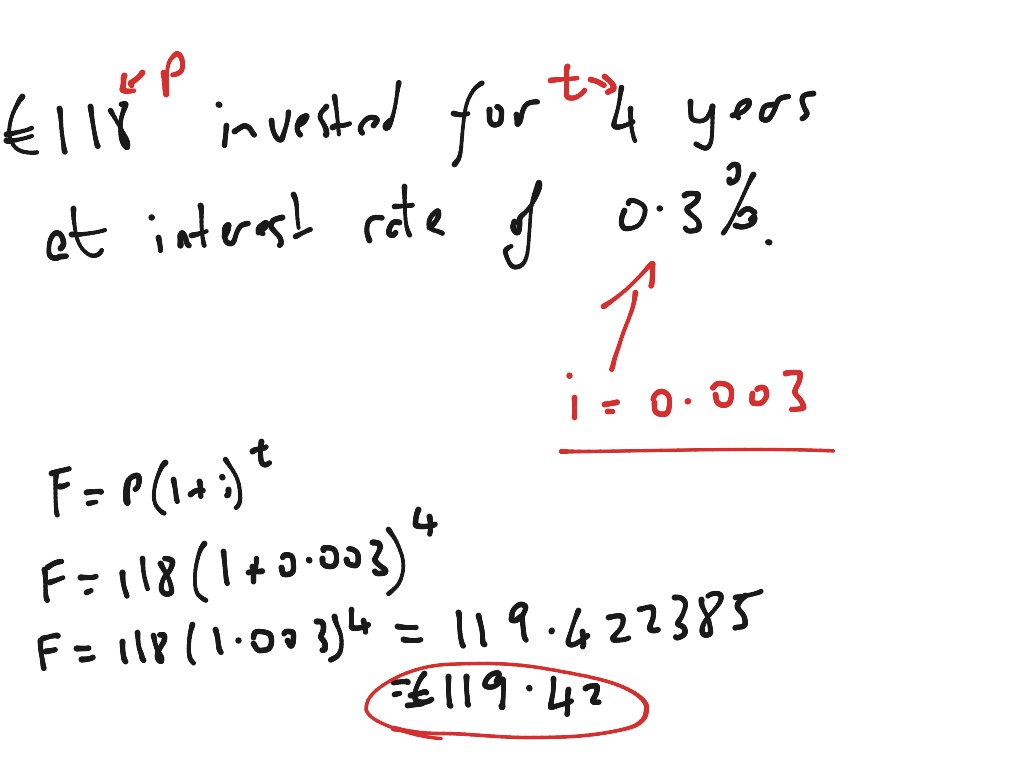 €118 ↙ P invested for t → 4 years
at interest rate of 0.3%.
i = 0.003
F = P(1+i)^t
F = 118(1+0.003)^4
F = 118(1.003)^4 = 119.422385
=€119.42